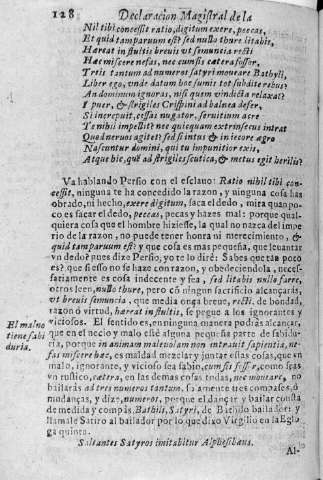 128 Declaracion Magistral de la
Nil tibi concessit ratio, digitum exere, peccas,
Et quid tam paruum est? sed nullo thure litabis,
Hæreat in stultis breuis vt semuncia recti
Hæc miscere nefas, nec cum sis cætera fossor,
Treis tantum ad numeros satyri moueare Bathylli,
Liber ego, vnde datum hoc sumis tot subdite rebus?
An dominum ignoras, nisi quem vindicta relaxat?
I puer, & strigiles Crispini ad balnea defer,
Si increpuit, cessas nugator. seruitium acre
Te nihil impellit? nec quicquam extrinsecus intrat
Quod neruos agitet? sed si intus & in iecore ægro
Nascuntur domini, qui tu impunitior exis,
Atque hic, quẽ ad strigiles scutica, & metus egit herilis?
Va hablando Persio con el esclauo: Ratio nihil tibi con-
cessit, ninguna te ha concedido la razon, y ninguna cosa has
obrado, ni hecho, exere digitum, saca el dedo, mira quan po-
co es sacar el dedo, peccas, pecas y hazes mal: porque qual-
quiera cosa que el hombre hiziesse, la qual no nazca del impe-
rio de la razon, no puede tener honra ni merecimiento, &
quid tam paruum est: y que cosa es mas pequeña, que leuantar
vn dedo? pues dize Persio, yo te lo diré: Sabes que tan poco
es? que si esso no se haze con razon, y obedeciendola, neces-
sariamente es cosa indecente y fea, sed litabis nullo farre,
otros leen, nullo thure, pero cõ ningun sacrificio alcançarás,
vt breuis semuncia, que media onça breue, recti, de bondad,
razon ó virtud, hæreat in stultis, se pegue a los ignorantes y
viciosos. El sentido es, en ninguna manera podrás alcançar,
que en el necio y malo esté alguna pequeña parte de sabidu-
ria, porque in animam maleuolam non intrauit sapientia, ne-
fas miscere hæc, es maldad mezclar y juntar essas cosas, que vn
malo, ignorante, y vicioso sea sabio, cum sis fossor, como seas
vn rustico, cætera, en las demas cosas todas, nec moueare, no
bailarás ad tres numeros tantum, solamente tres compases, ó
mudanças, y dize, numeros, porque el dançar y bailar consta
de medida y compás, Bathili, Satyri, de Bathilo bailador: y
llamale Satiro al bailador por lo que dixo Virgilio en la Eglo
ga quinta.
Saltantes Satyros imitabitur Alphesibæus.
Al-
El malo no
tiene sabi
duria.